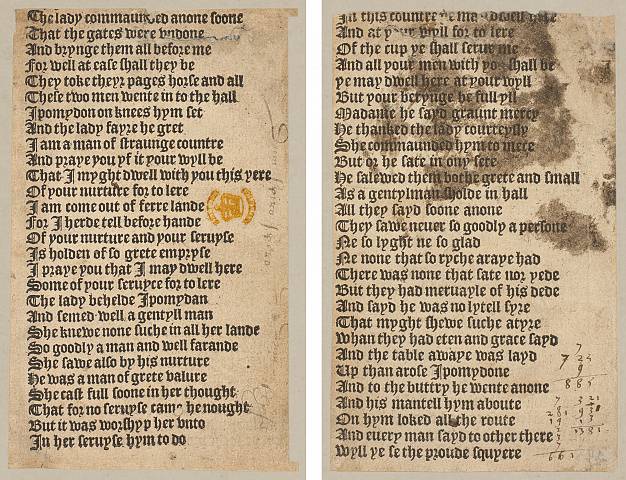 The lady commaunded anone soone
That the gates were vndone
And brynge them all before me
For well at ease shall they be
They toke theyr pages horse and all
These two men wente in to the hall
Ipomydon on knees hym set
And the lady fayre he gret
I am a man of straunge countre
And praye you yf it your wyll be
That I myght dwell with you this yere
Of your nurture for to lere
I am come out of ferre lande
For I herde tell before hande
Of your nurture and your seruyse
Is holden of so grete empryse
I praye you that I may dwell here
Some of your seruyce for to lere
The lady behelde Ipomydan
And semed well a gentyll man
She knewe none suche in all her lande
So goodly a man and well farande
She sawe also by his nurture
He was a man of grete valure
She cast full soone in her thought
That for no seruyse cam he nought
But it was worshyp her vnto
In her seruyse hym to do
In this countre ye ma dwell here
And at your wyll for to lere
Of the cup ye shall serue me
And all your men with you shall be
ye may dwell here at your wyll
But your berynge be full yll
Madame he sayd graunt mercy
He thanked the lady courteysly
She commaunded hym to mete
But or he sate in ony sete
He salewed them bothe grete and small
As a gentylman sholde in hall
All they sayd soone anone
They sawe neuer so goodly a persone
Ne so lyght ne so glad
Ne none that so ryche araye had
There was none that sate nor yede
But they had meruayle of his dede
And sayd he was no lytell syre
That myght shewe suche atyre
whan they had eten and grace sayd
And the table awaye was layd
Up than arose Ipomydone
And to the buttry he wente anone
And his mantell hym aboute
On hym loked all the route
And euery man sayd to other there
Wyll ye se the proude squyere